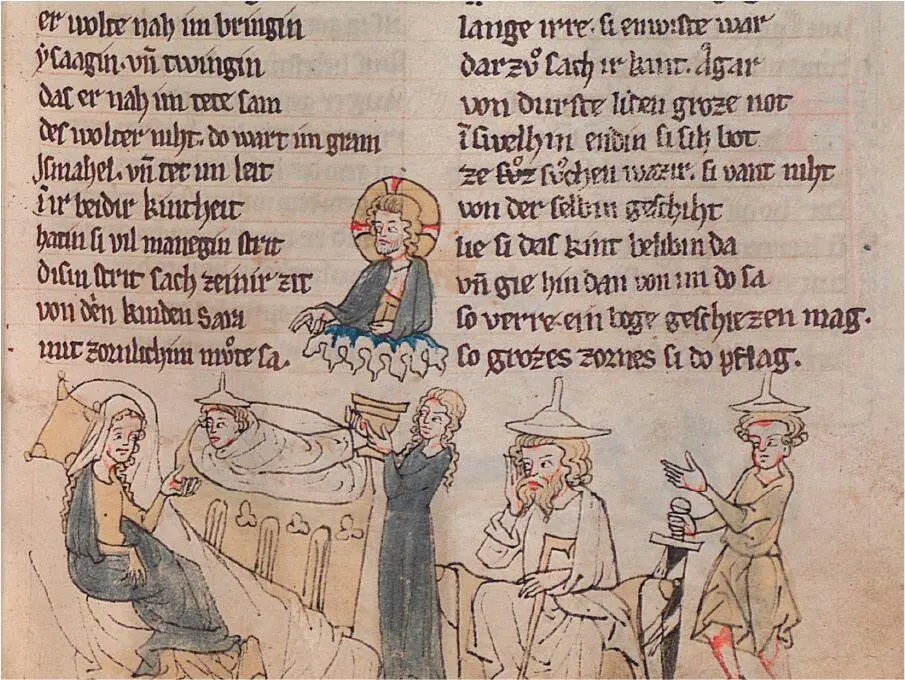 er wolte nah im bringin
ysaagin. vn̄ twingin
das er nah im tete sam
des wolter niht. do wart im gram
Jsmahel. vn̄ tet im leit
ī ir beidir kintheit
hatin si vil manegin strit
disin strit sach zeinir zit
von den kinden Sara
mit zornlichim mv̊te sa.
lange irre. si enwiste war
dar zv̊ sach ir kint. Agar
von durste liden groze not
ī swelhin endin si sih bot
ze sv̊chen wazir. si vant niht
von der selbin geschiht
lie si das kint belibin da
vn̄ gie hin dan von im do sa
so verre. ein boge geschiezen mag.
so grozes zornes si do pflag.